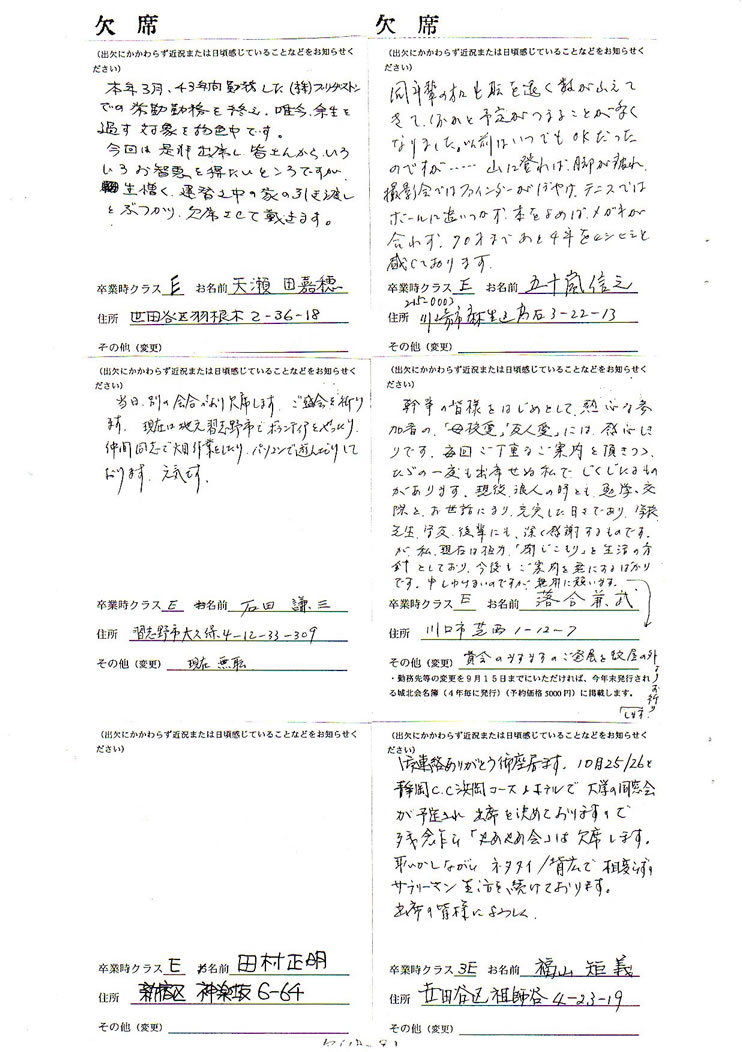 欠 席
(出欠にかかわらず近況または日頃感じていることなどをお知らせく
ださい)
本年3月、43年間勤務した(株)ブリヂストン
での常勤勤務を終え、唯今、余生を
過す対象を物色中です。
今回は是非出席し皆さんから、いろ
いろお智恵を得たいところですが、
生憎く、建替え中の家の引き渡し
とぶつかり、欠席させて戴きます。
卒業時クラス E お名前 天瀬 田嘉穂
住所 世田谷区羽根木 2-36-18
その他(変更)
欠 席
(出欠にかかわらず近況または日頃感じていることなどをお知らせく
ださい)
同年輩の机も転を遠く数が
きて、 と予定がつまることが多く
なりました。以前はいつでもOKだった
のですが…… 山に登れば、脚が疲れ、
撮影会ではファインダーがぼやけ、テニスでは
ボールに追いつかず、本をよめば、メガネが
合わず、70才まであと4年をヒシヒシと
感じております。
卒業時クラス E お名前 五十嵐信之
215-0003
住所 川崎市麻生区高石3-22-13
その他(変更)
(出欠にかかわらず近況または日頃感じていることなどをお知らせく
ださい)
当日、別の会合があり欠席します。ご盛会を祈り
ます。現在は地元習志野市でボランティアをやったり、
仲間同志で大田作業をしたり、パソコンで遊んだりして
おります。元気です。
卒業時クラス E お名前 石田 謙三
住所 習志野市大久保4-12-33-309
その他(変更) 現在 無職
(出欠にかかわらず近況または日頃感じていることなどをお知らせく
ださい)
幹事の皆様をはじめとして、熱心な参
加者の、「母校愛」「友人愛」には、感心しき
りです。毎回ご丁重なご案内を頂きつつ、
ただの一度も出席せぬ私で、じくじたるもの
があります。現役、浪人の時とも、勉学、交
際と、お世話になり、充実した日々であり、学校
先生、学友、後輩にも、深く感謝するものです。
が、私、現在は極力、「閉じこもり」を生活の方
針としており、今後もご案内を無にするばかり
です。申しわけないのですが、
卒業時クラス E お名前 落合兼武
住所 川口市芝西1-12-7
その他(変更) 貴会のますますのご発展を
よりお祈り
します。
・勤務先等の変更を9月15日までにいただければ、今年末発行され
る城北会名簿(4年毎に発行)(予約価格5000円)に掲載します。
(出欠にかかわらず近況または日頃感じていることなどをお知らせく
ださい)
卒業時クラス E お名前 田村正明
住所 新宿区 神楽坂 6-64
その他(変更)
(出欠にかかわらず近況または日頃感じていることなどをお知らせく
ださい)
御連絡ありがとう御座居ます。10月25/26と
静岡C.C浜岡コース&ホテルで大学の同窓会
が予定され出席を決めておりますので
残念乍ら「 会」は欠席します。
恥かしながら ネクタイ/背広で 相変らず
サラリーマン生活を続けております。
出席の皆様によろしく。
卒業時クラス 3E お名前 福山 矩義
住所 世田谷区祖師谷4-23-19
その他(変更)